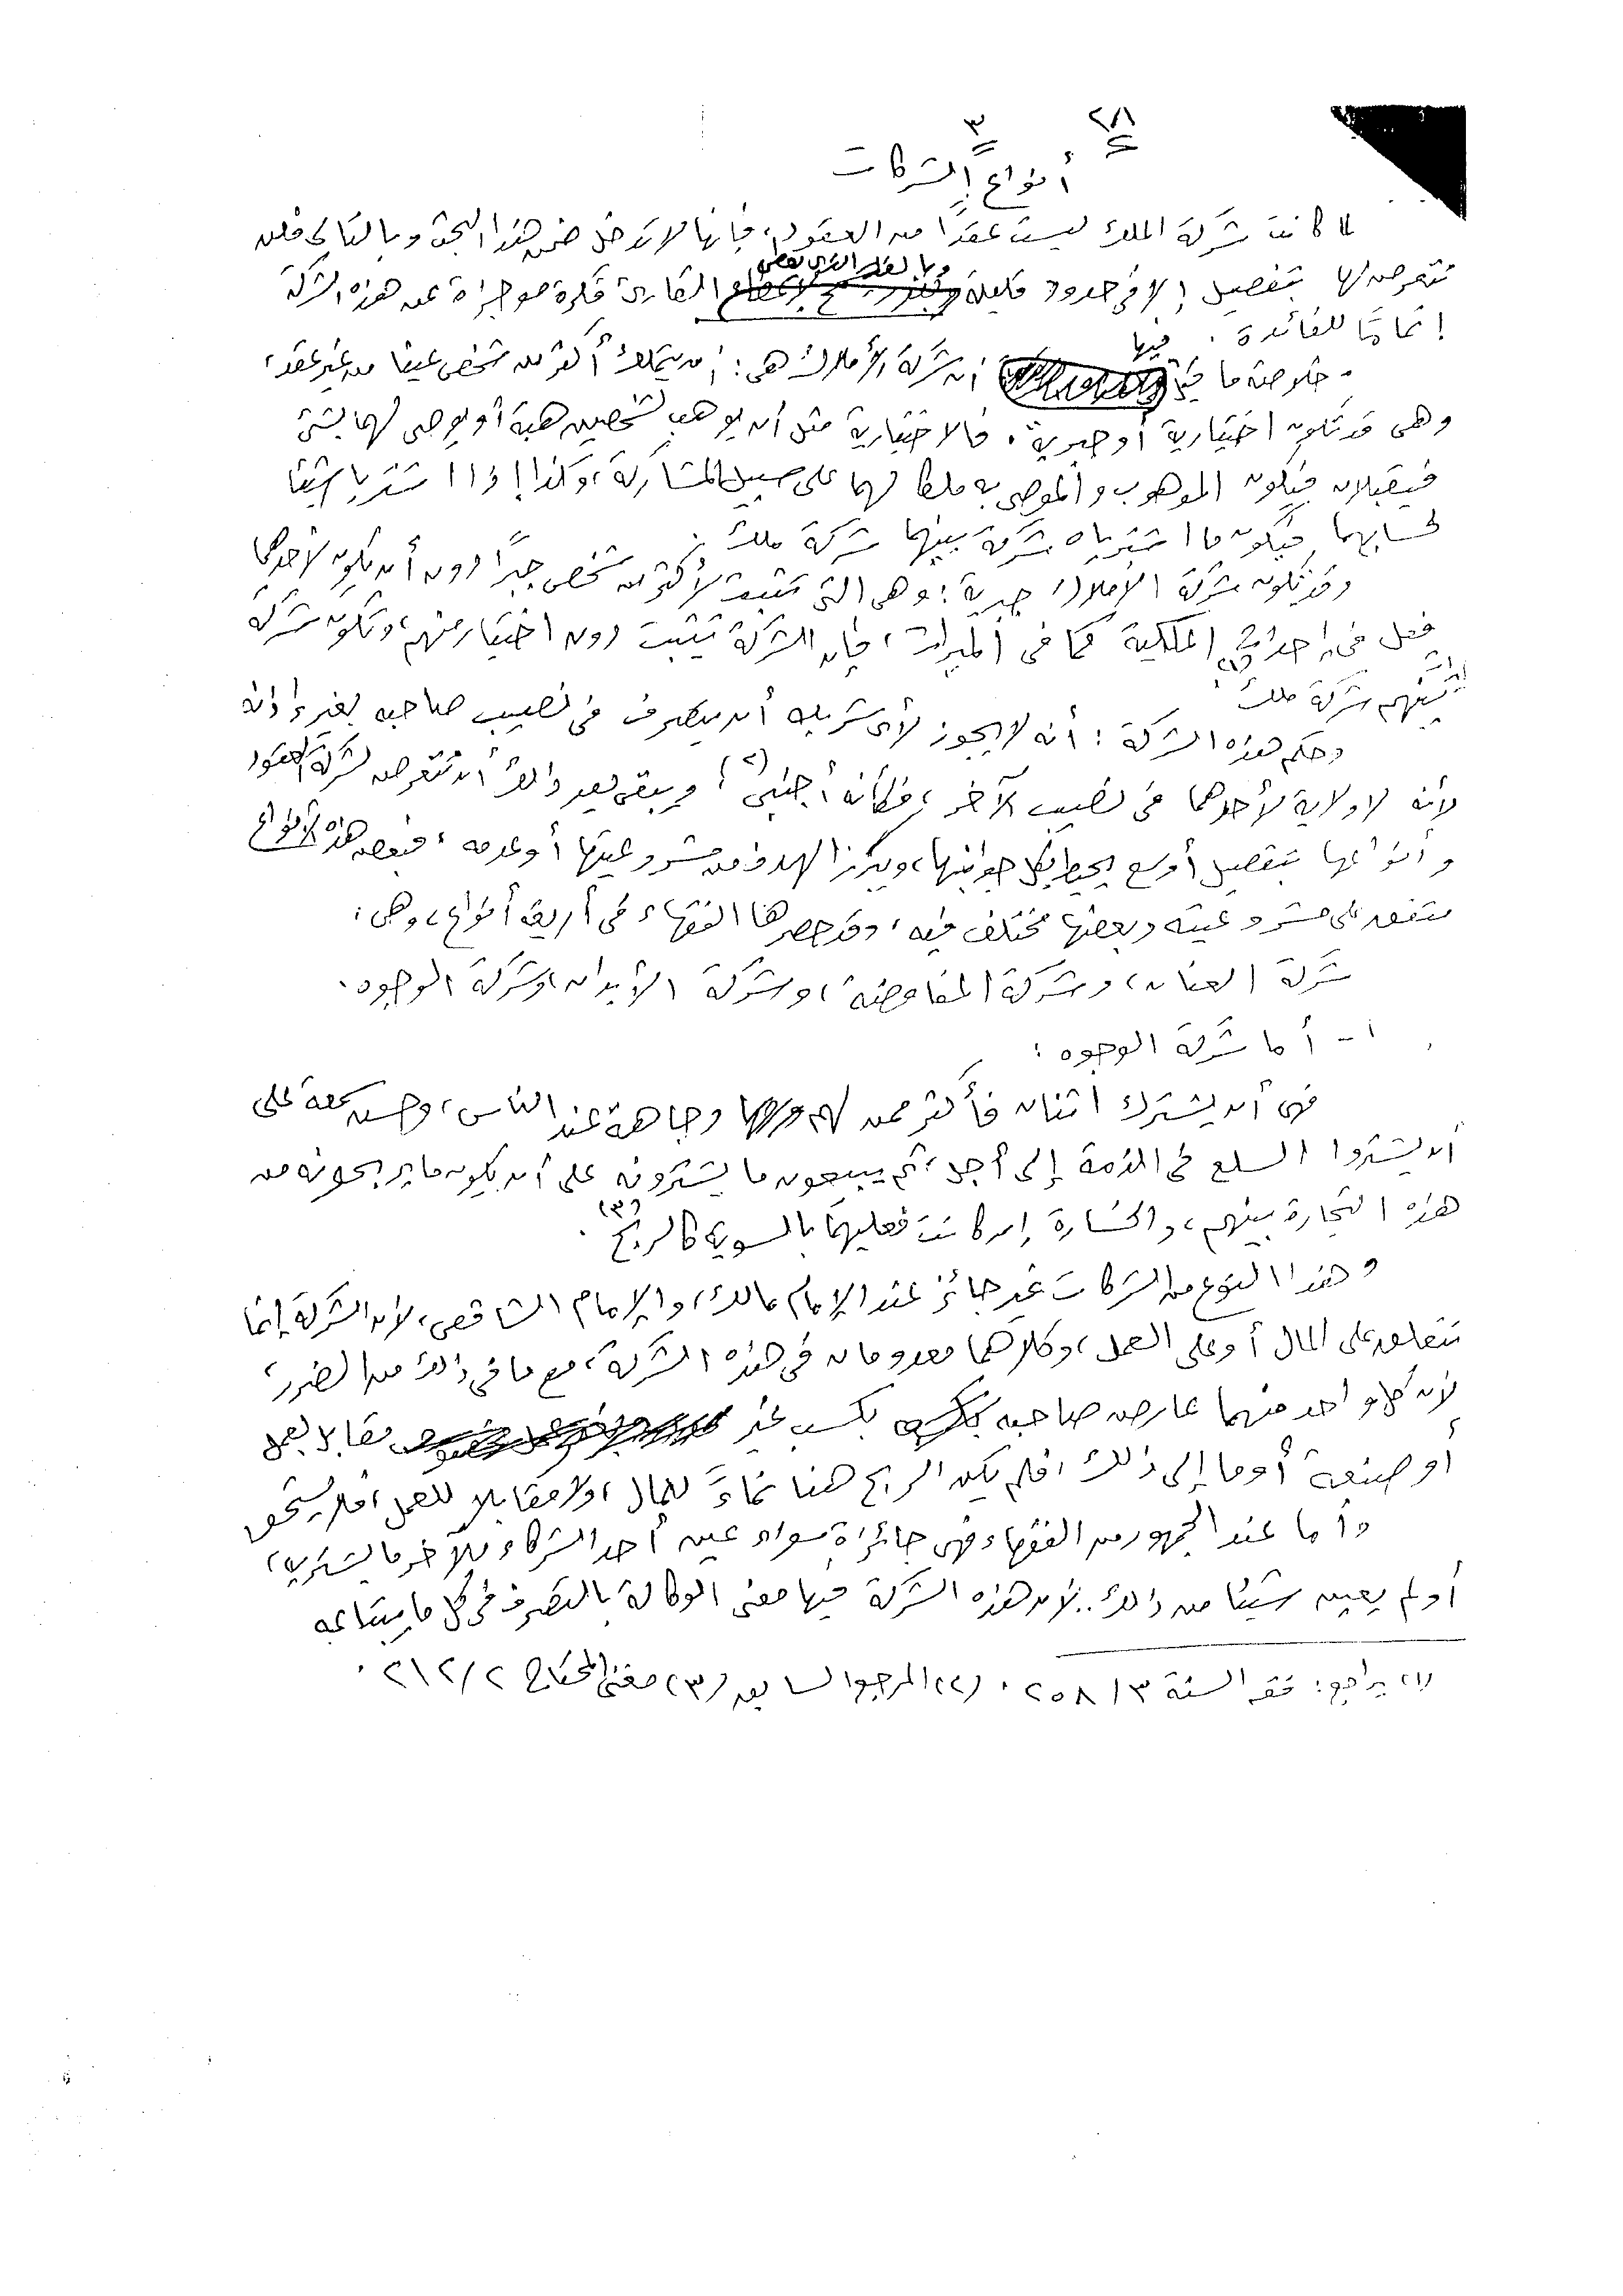 ٢٨
٣
أنواع الشركات
لما كانت شركة الملك ليست عقدًا من العقود، فإنها لا تدخل ضمن هذا البحث وبالتالى فلن
نتعرض لها بتفصيل إلا فى حدود قليلة وبالقدر الذى يعطى القارئ فكرة موجزة عن هذه الشركة
إتمامًا للفائدة.
خلاصة ما فيها أن شركة الأملاك هى: أن يتملك أكثر من شخص عينا من غير عقد،
وهى قد تكون اختيارية أو جبرية، فالاختيارية مثل أن يوهب لشخصين هبة أو يوصى لهما بشئ
فيقبلان فيكون الموهوب والموصى به ملكا لهما على سبيل المشاركة، وكذا إذا اشتريا شيئا
لحسابهما فيكون ما اشترياه شركة بينهما شركة ملك.
وقد تكون شركة الأملاك جبرية: وهى التى تثبت لأكثر من شخص جبرًا دون أن يكون لأحدهما
فعل فى إحداث الملكية كما فى الميراث، فإن الشركة تثبت دون اختيار منهم، وتكون شركة
بينهم شركة ملك (١).
وحكم هذه الشركة: أنه لا يجوز لأى شريك أن يتصرف فى نصيب صاحبه بغير إذنه
لأنه لا ولاية لأحدهما فى نصيب الآخر، فكأنه أجنبى (٢)، ويبقى بعد ذلك أن نتعرض لشركة العقود
وأنواعها بتفصيل أوسع يحيط بكل جوانبها، ويبرز الهدف من مشروعيتها أو عدمه، فبعض هذه الأنواع
متفق على مشروعيته وبعضها مختلف فيه، وقد حصرها الفقهاء فى أربعة أنواع، وهى:
شركة العنان، وشركة المفاوضة، وشركة الأبدان، وشركة الوجوه.
١- أما شركة الوجوه:
فهى أن يشترك اثنان فأكثر ممن لهم وجاهة عند الناس، وحسن سمعة على
أن يشتروا السلع فى الذمة إلى أجل، ثم يبيعون ما يشترونه على أن يكون ما يربحونه من
هذه التجارة بينهم، والخسارة إن كانت فعليهما بالسوية كالربح (٣).
وهذا النوع من الشركات غير جائز عند الإمام مالك، والإمام الشافعى، لأن الشركة إنما
تتعلق على المال أو على العمل، وكلاهما معدومان فى هذه الشركة، مع ما فى ذلك من الضرر،
لأن كل واحد منهما عارض صاحبه بكسب غير مقابل بعمل
أو صنعة أو ما إلى ذلك، فلم يكن الربح هنا نماءً للمال، ولا مقابلا للعمل، فلا يستحق
وأما عند الجمهور من الفقهاء فهى جائزة سواء عين أحد الشركاء للآخر ما يشتريه،
أو لم يعين شيئا من ذلك.. لأن هذه الشركة فيها معنى الوكالة بالتصرف فى كل ما يبتاعه
(١) يراجع: فقه السنة ٣/٢٥٨. (٢) المرجع السابق (٣) مغنى المحتاج ٢/٢١٢.